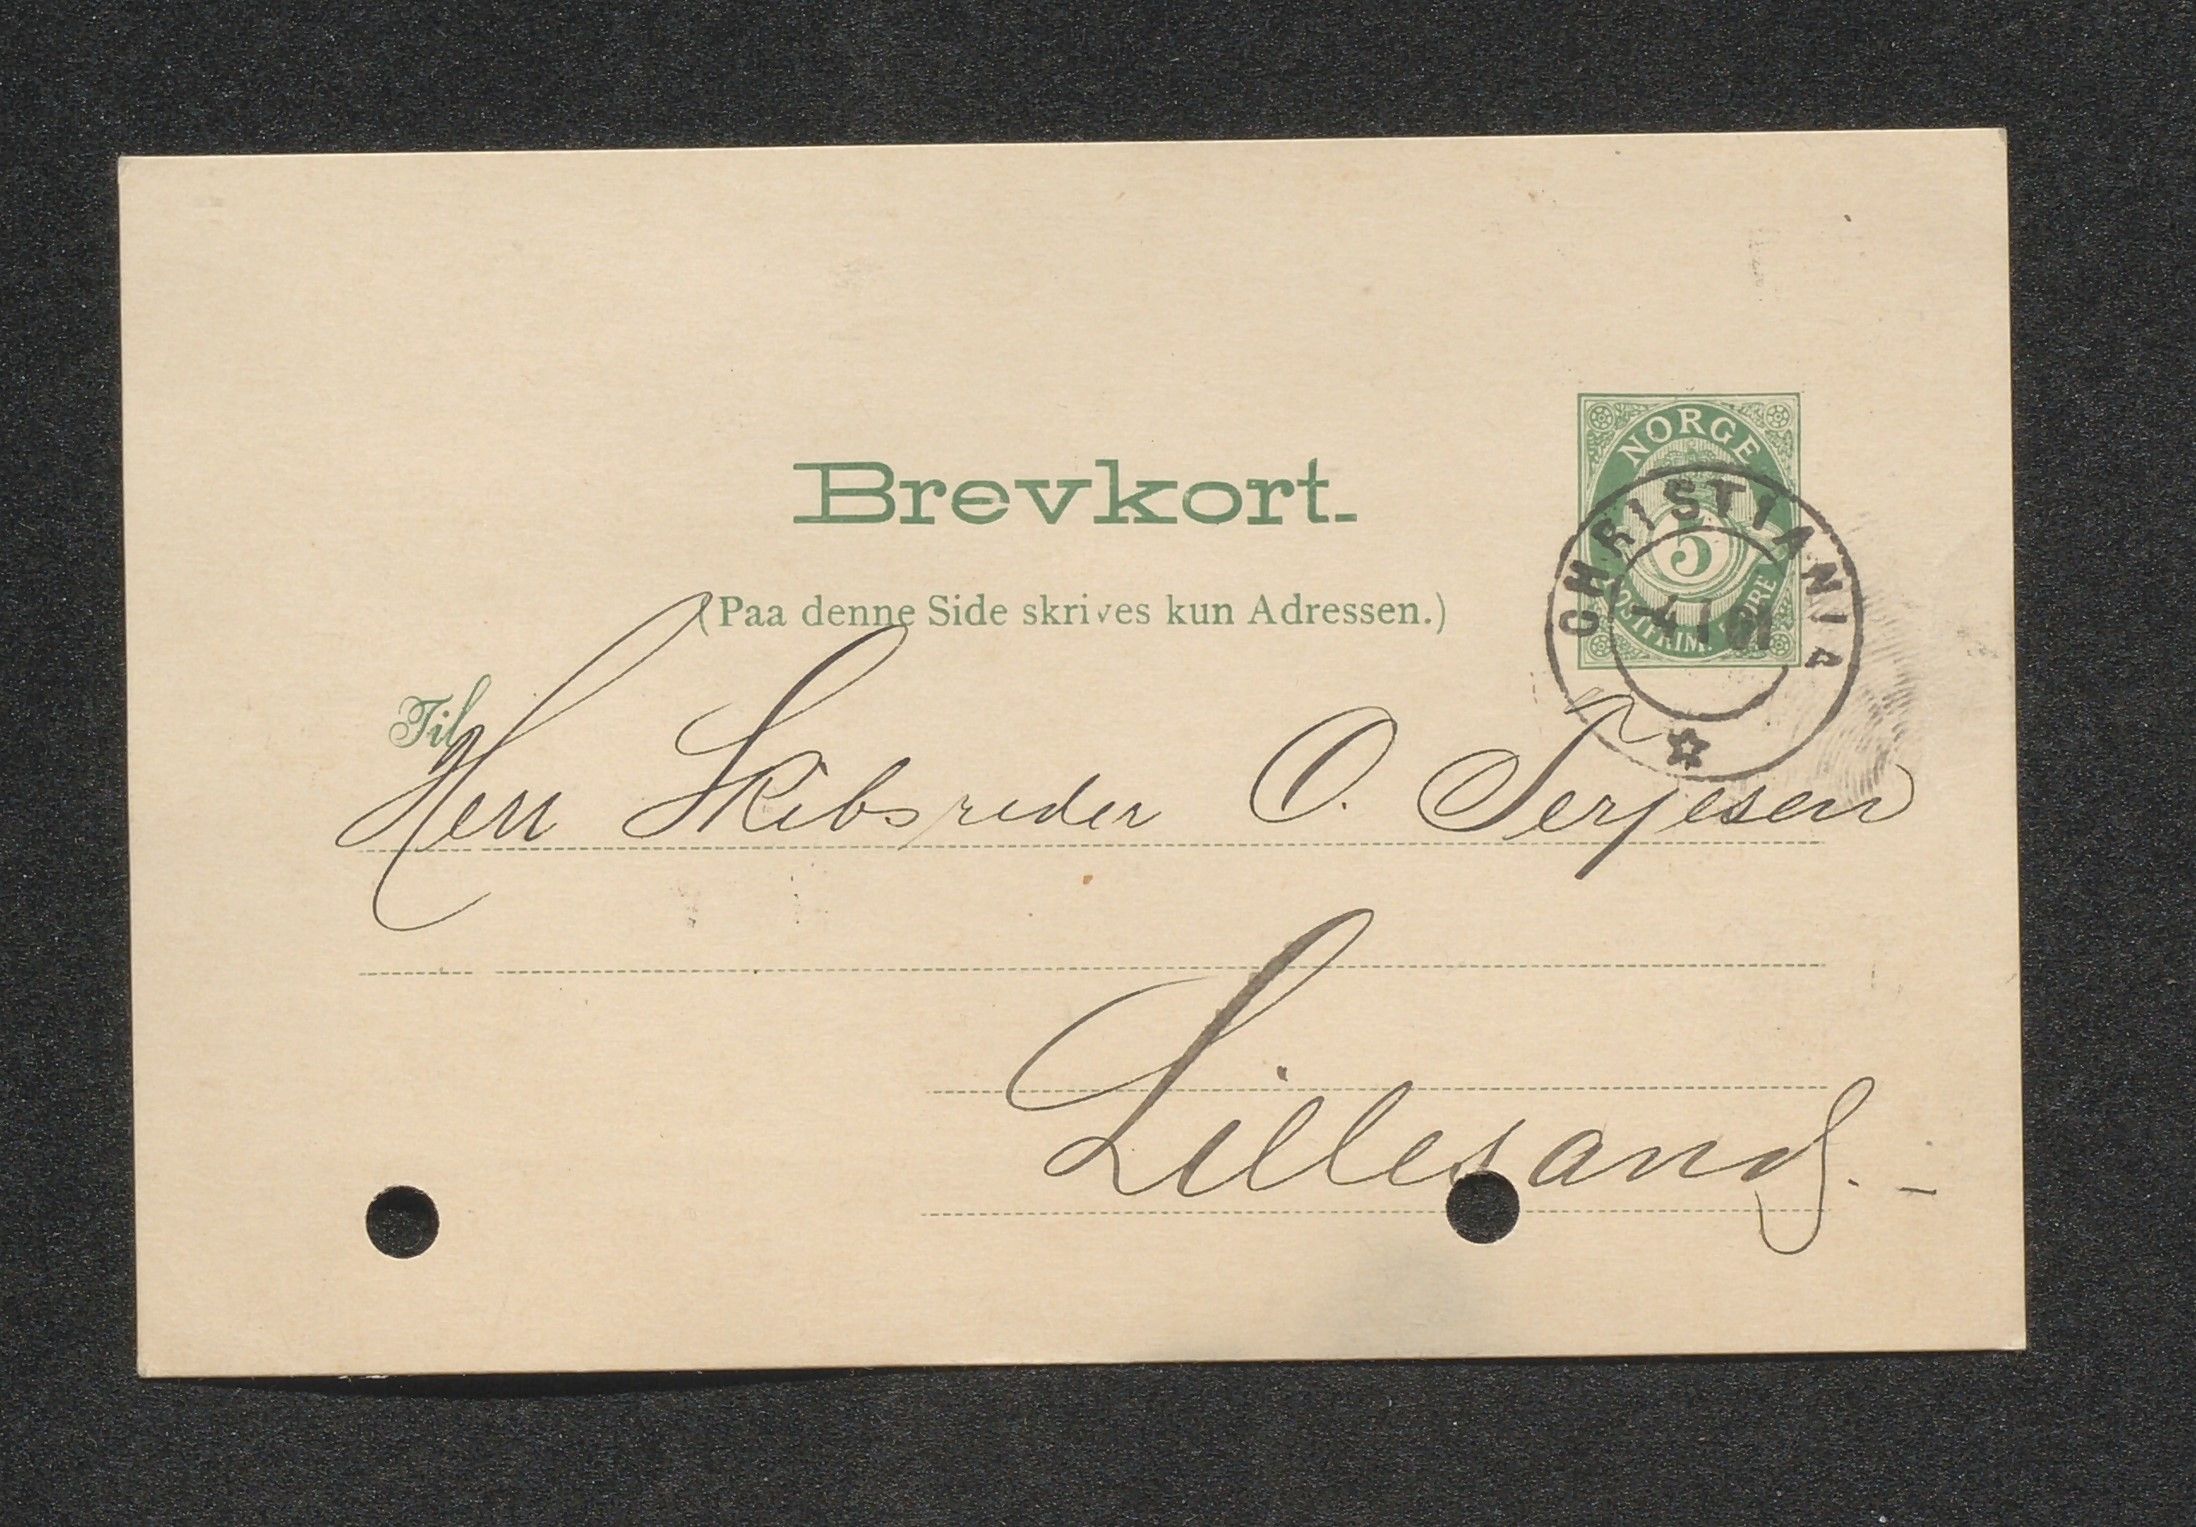 Brevkort.
NORGE
5
POSTFRIM. ØRE
CHRISTIANIA
-4 1 01
(Paa denne Side skrives kun Adressen.)
Til
Herr Skibsreder O. Terjesen
Lillesand. -